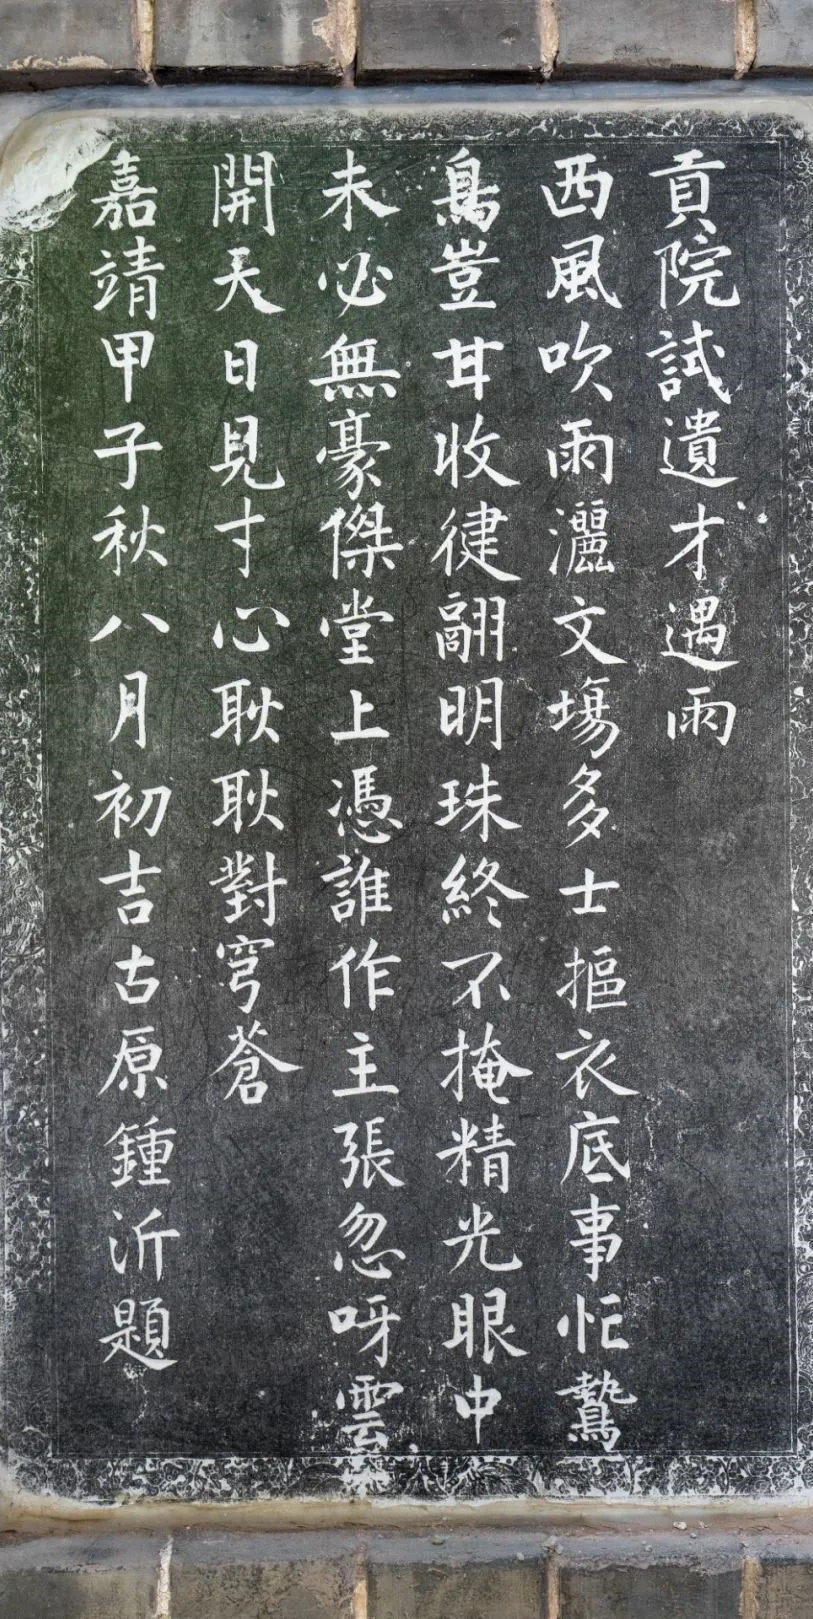 貢院試遺才遇雨
西風吹雨灑文塲多士摳衣底事忙鷙
鳥豈甘收徤翮明珠終不掩精光眼中
未必無豪傑堂上憑誰作主張忽呀雲
開天日見寸心耿耿對穹蒼
嘉靖甲子秋八月初吉古原鍾沂題